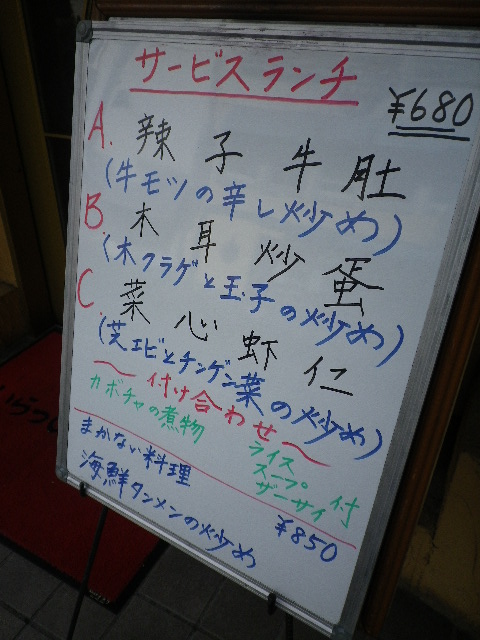 サービスランチ
¥680
A. 辣子牛肚
(牛モツの辛し炒め)
B 木耳炒蛋
(木クラゲと玉子の炒め)
C 菜心蝦仁
(芝エビとチンゲン菜の炒め)
〜付け合わせ〜
カボチャの煮物
ライス
スープ
ザーサイ付
まかない料理
海鮮タンメンの炒め
¥850
いらっし